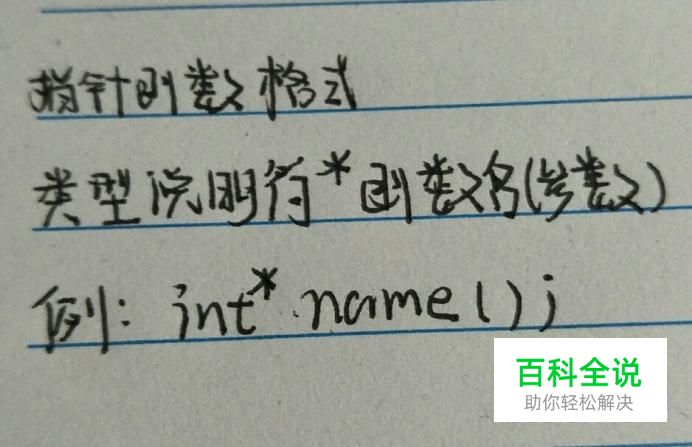 指针函数格式
类型说明符*函数名(参数)
例: int* name();
百科全说
助你轻松解决